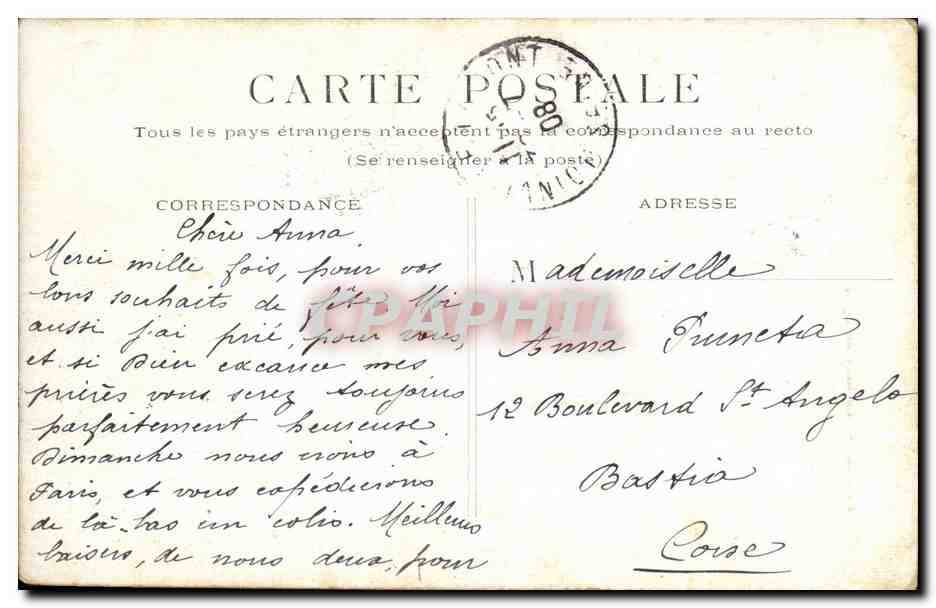 CARTE POSTALE
Tous les pays étrangers n'acceptent pas la correspondance au recto
(Se renseigner à la poste)
CORRESPONDANCE
Chère Anna
Merci mille fois, pour vos
bons souhaits de fête. Moi
aussi j'ai prié, pour vous,
et si Dieu exauce mes
prières vous serez toujours
parfaitement heureuse.
Dimanche nous irons à
Paris, et vous expédierons
de là-bas un colis. Meilleurs
baisers, de nous deux, pour
ADRESSE
Mademoiselle
Anna
12 Boulevard St. Angelo
Bastia
Corse
08
CPAPHIL